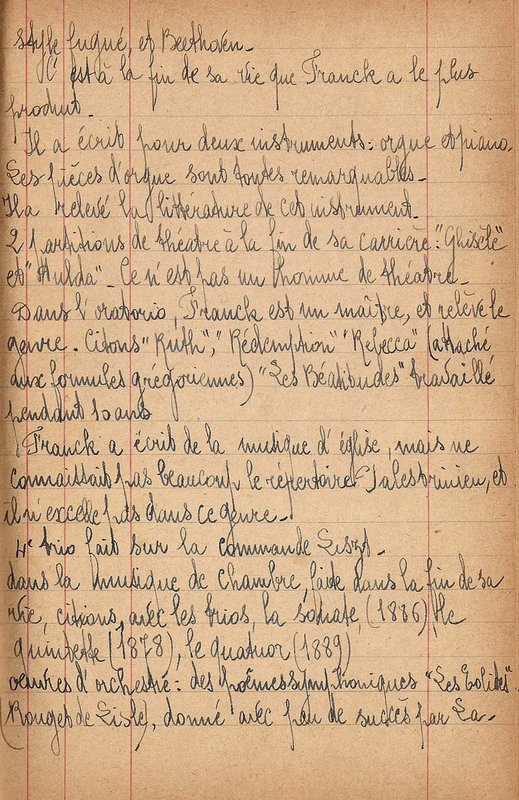 style fugué, et Beethoven_
C'est à la fin de sa vie que Franck a le plus
produit.
Il a écrit pour deux instruments: orgue et piano.
Ses pièces d'orgue sont toutes remarquables_
Il a relevé la littérature de cet instrument.
2 partitions de théatre à la fin de sa carrière: "Ghisèle"
et "Hulda"_ Ce n'est pas un homme de théatre_
Dans l'oratorio, Franck est un maître, et relève le
genre. Citons "Ruth", "Rédemption" "Rebecca" (attaché
aux formules grégoriennes) "Les Béatitudes" travaillé
pendant 10 ans
Franck a écrit de la musique d'église, mais ne
connaissait pas beaucoup le répertoire Palestrinien, et
il n'excelle pas dans ce genre_
4e trio fait sur la commande Liszt_
dans la musique de chambre, faite dans la fin de sa
vie, citons, avec les trios, la sonate, (1886) le
quintette (1878), le quatuor (1889)
oeuvres d'orchestre: des poèmes symphoniques "Les Eolides"
(Rouget de Lisle), donné avec peu de succès par La-